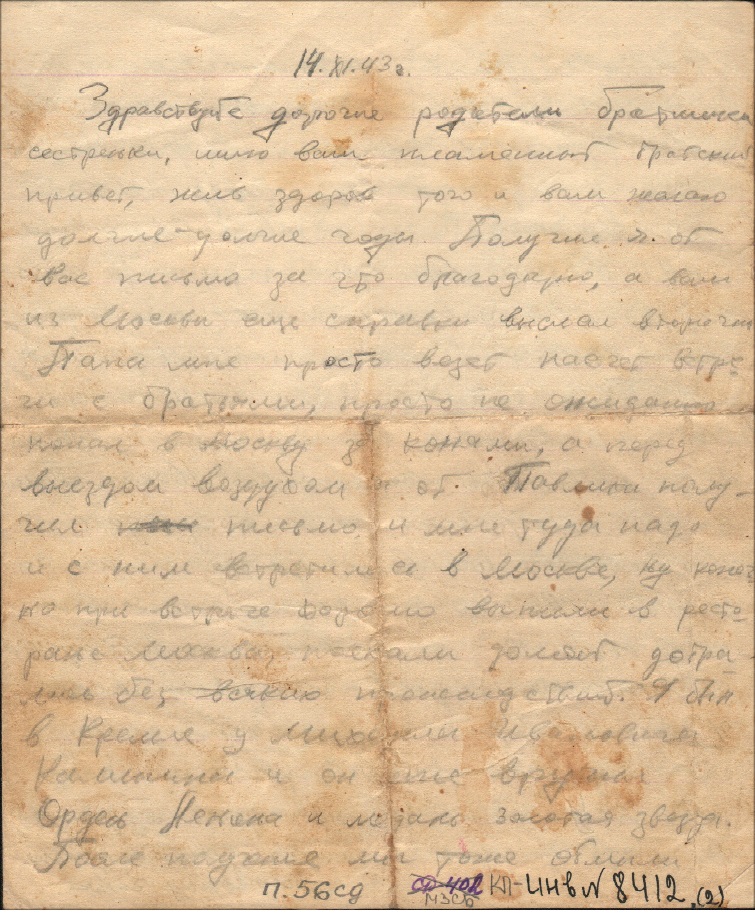 14.XI.43г.
Здравствуйте дорогие родители братишки
сестреньки, шлю вам пламенный братский
привет, жив здоров того и вам желаю
долгие-долгие годы. Получил я от
вас письмо за что благодарю, а вам
из Москвы еще справки выслал вторично
Папа мне просто везет насчет встре
чи с братьями, просто не ожиданно
попал в Москву за конями, а перед
выездом от Павлика полу-
чил письмо и мне туда надо
и с ним встретился в Москве, ну конеч
но при встрече выпили в ресто
ране Москва, поехали домой добра
лись без всяких происшествий. Я был
в Кремле у Михаила Ивановича
Калинина и он мне вручил
Орден Ленина и медаль золотая звезда.
После получше мы тоже обмыли
п.56сд КП-инв№8412.(2)
МЗСБ